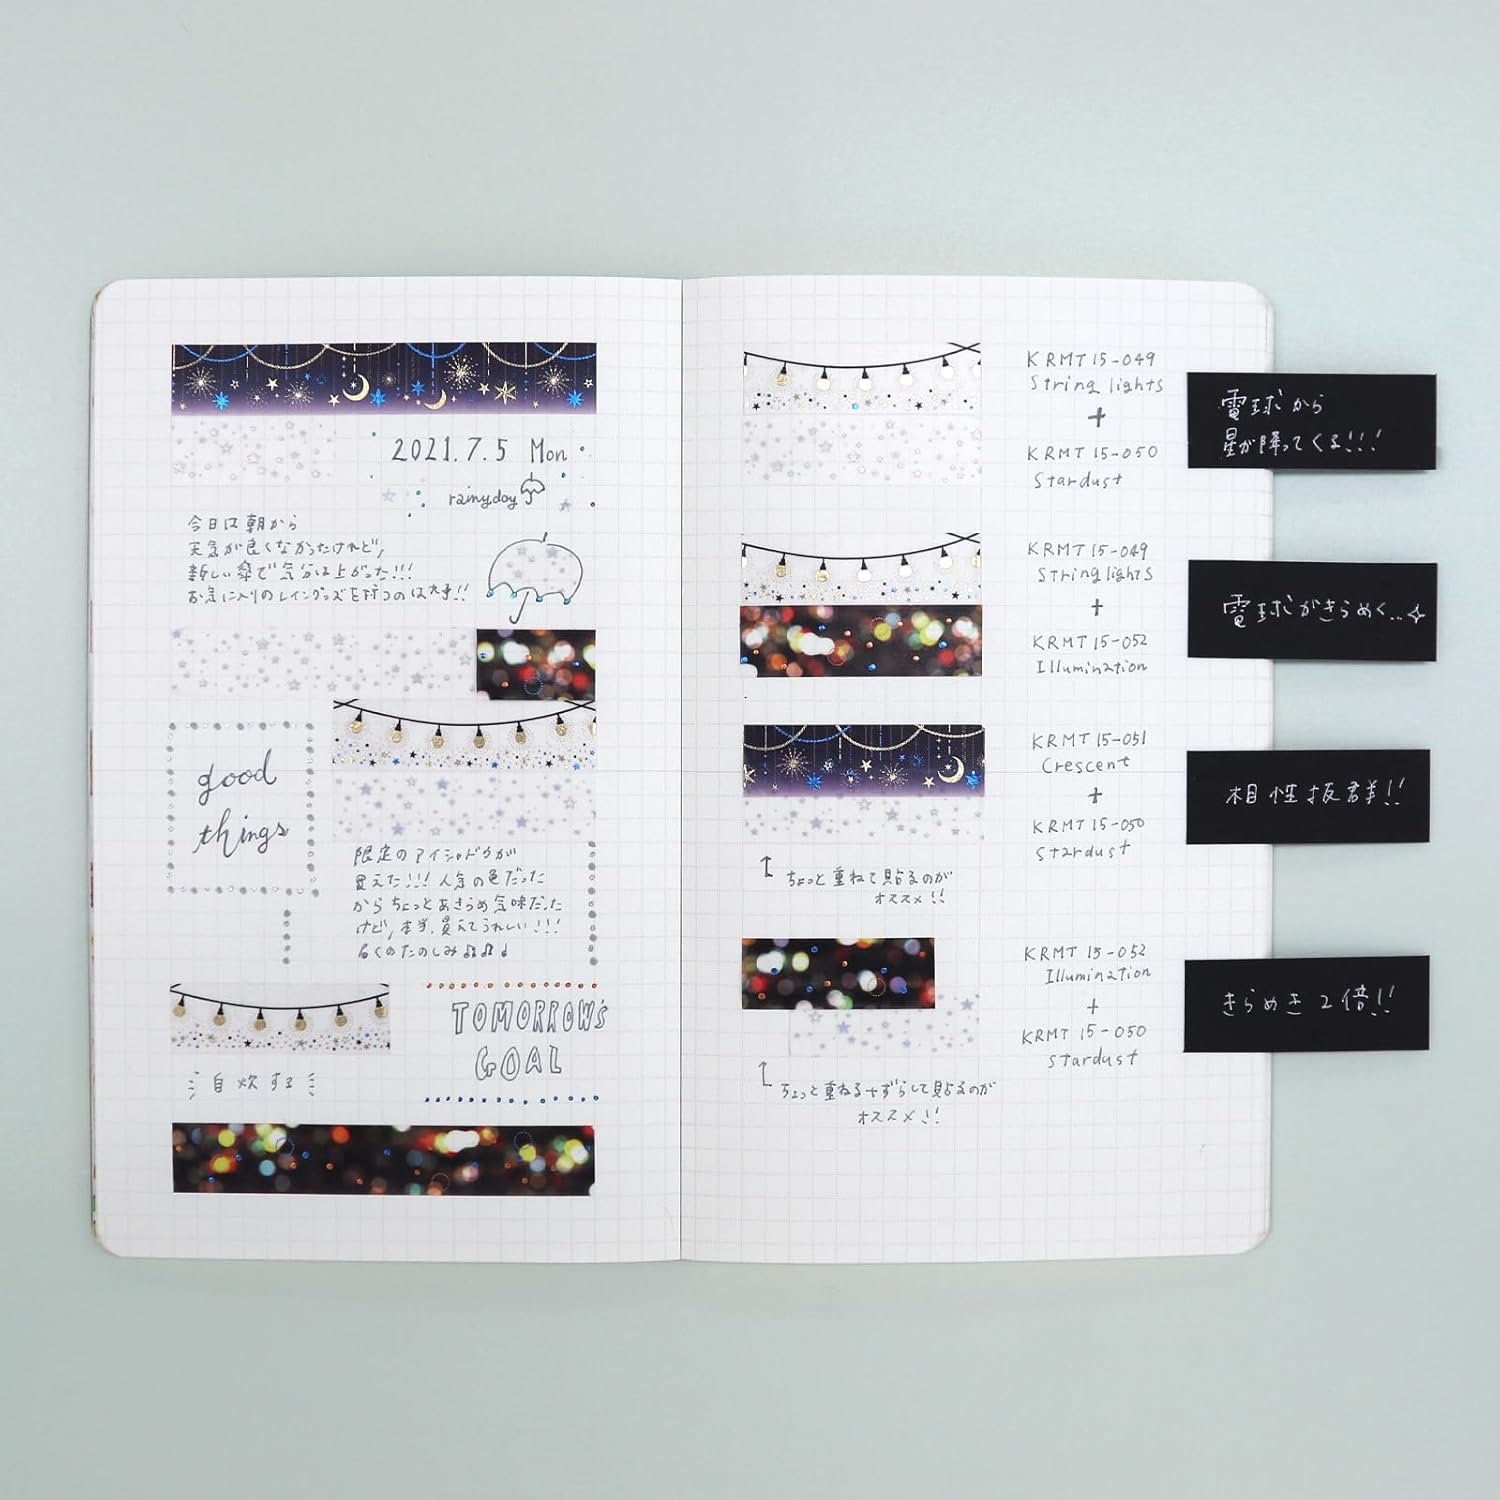 2021.7.5 Mon
rainy day
今日は朝から
天気が良くなかったけれど,
新しい傘で気分は上がった!!!
お気に入りのレイングッズを持つのは大事!!
good
things
限定のアイシャドウが
買えた!!! 人気の色だった
からちょっとあきらめ気味だった
けど,本当,買えてうれしい!!!
らくのたのしみ♫♫♩
TOMORROW'S
GOAL
自炊する
KRMT15-049
String lights
+
KRMT15-050
Stardust
電球から
星が降ってくる!!!
KRMT15-049
String lights
+
KRMT15-052
Illumination
電球がきらめく...✧
KRMT15-051
Crescent
+
KRMT15-050
Stardust
相性抜群!!
ちょっと重ねて貼るのが
オススメ!!
KRMT15-052
Illumination
+
KRMT15-050
Stardust
きらめき2倍!!
ちょっと重ねる+ずらして貼るのが
オススメ!!